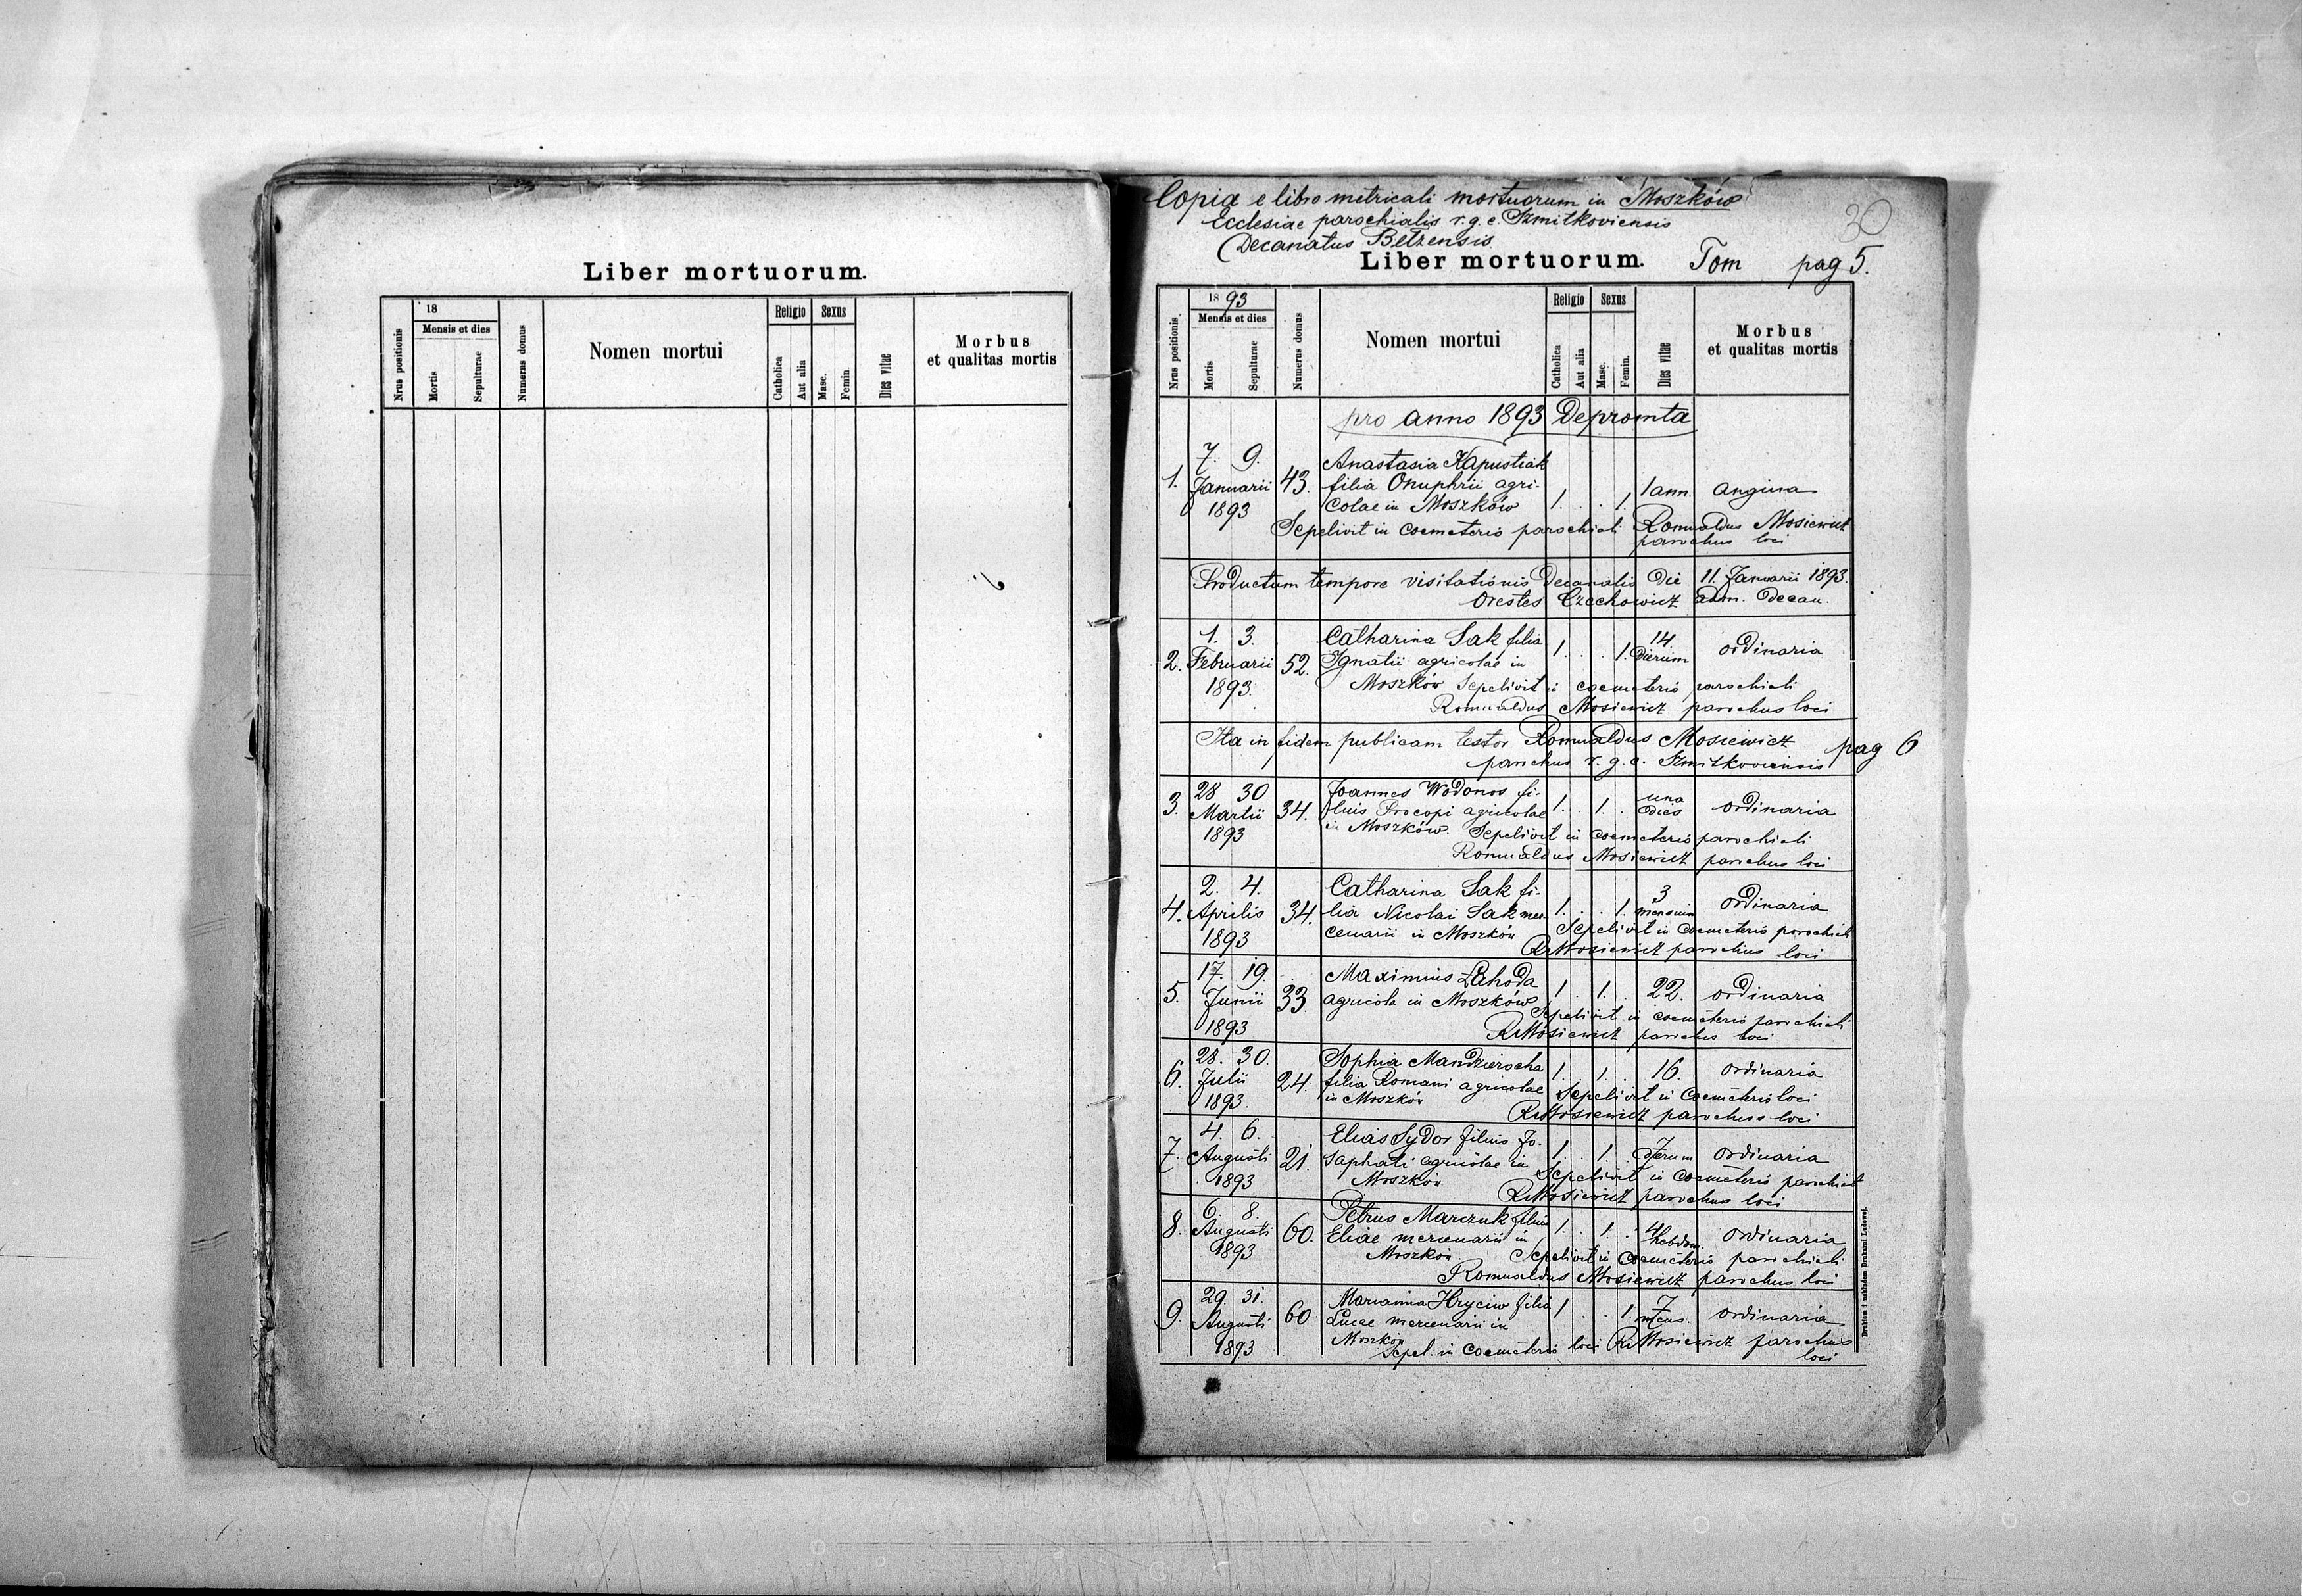 Liber mortuorum.
Nrus positionis
18
Mensis et dies
Mortis
Sepulturae
Numerus domus
Nomen mortui
Religio
Catholica
Aut alia
Sexus
Masc.
Femin.
Dies vitae
Morbus
et qualitas mortis
Copia e libro metricali mortuorum in Moszków
Ecclesiae parochialis r. g. c. Szmitkoviensis
Decanatus Belzensis
30
Liber mortuorum. Tom pag 5.
Nrus positionis
18 93
Mensis et dies
Mortis
Sepulturae
Numerus domus
Nomen mortui
Religio
Catholica
Aut alia
Sexus
Masc.
Femin.
Dies vitae
Morbus
et qualitas mortis
pro anno 1893 Depromta
7. 9. Anastasia Kapustiak
1. Januarii 43. filia Onuphrii agri- 1 ann. angina
1893 colae in Moszków 1. . . 1.
Sepelivit in coemeterio parochiali Romualdus Mosiewicz
parochus loci
Productum tempore visitationis Decanalis die 11. Januarii 1893.
Orestes Czechowicz adm. decan.
1. 3. Catharina Sak filia 14
2. Februarii 52. Ignatii agricolae in 1. . . 1. dierum ordinaria
1893. Moszków Sepelivit in coemeterio parochiali
Romualdus Mosiewicz parochus loci
Ita in fidem publicam testor Romualdus Mosiewicz pag 6
parochus r. g. c. Szmitkoviensis
28 30 Joannes Wodonos fi- una
3. Martii 34. lius Procopi agricolae 1. . 1. . dies ordinaria
1893 in Moszków. Sepelivit in coemeterio parochiali
Romualdus Mosiewicz parochus loci
2. 4. Catharina Sak fi- 3
4. Aprilis 34. lia Nicolai Sak mer- 1. . . 1. mensium ordinaria
1893 cenarii in Moszków Sepelivit in coemeterio parochiali
R. Mosiewicz parochus loci
17. 19. Maximus Lahoda
5. Junii 33. agricola in Moszków 1 . 1. . 22. ordinaria
1893 Sepelivit in coemeterio parochiali
R. Mosiewicz parochus loci
28. 30. Sophia Mandzierocha
6. Julii 24. filia Romani agricolae 1. . 1. . 16. ordinaria
1893. in Moszków Sepelivit in Coemeterio loci
R. Mosiewicz parochus loci
4. 6. Elias Sydor filius Jo-
7. Augusti 21. saphati agricolae in 1. . 1. . 7 dierum ordinaria
1893 Moszków Sepelivit in coemeterio parochiali
R. Mosiewicz parochus loci
6. 8. Petrus Marczuk filius
8. Augusti 60. Eliae mercenarii in 1. . 1. . 4 hebdom. ordinaria
1893 Moszków. Sepelivit in coemeterio parochiali
Romualdus Mosiewicz parochus loci
29. 31. Marianna Hryciw filia
9. Augusti 60 Lucae mercenarii in 1 . . 1. 7 mens. ordinaria
1893 Moszków Sepel. in coemeterio loci R. Mosiewicz parochus
loci
Drukiem i nakładem Drukarni Ludowej.